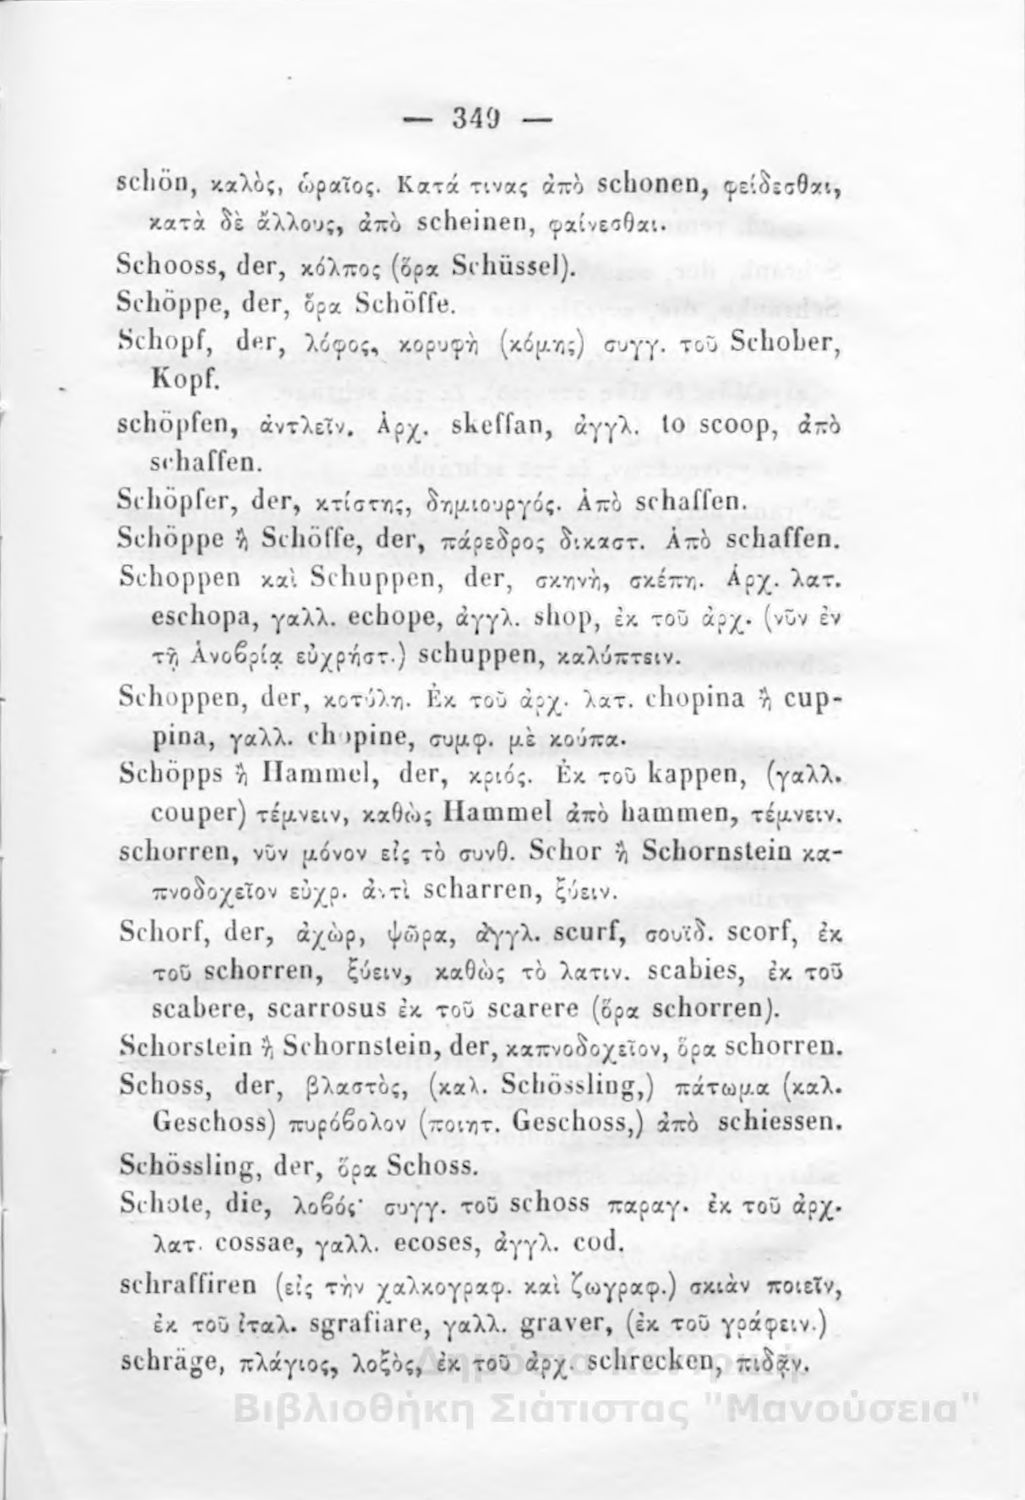 — 349 —
schön, καλὸς, ὡραῖος. Κατά τινας ἀπὸ schonen, φείδεσθαι,
κατὰ δὲ ἄλλους, ἀπὸ scheinen, φαίνεσθαι.
Schooss, der, κόλπος (ὅρα Schüssel).
Schöppe, der, ὅρα Schöffe.
Schopf, der, λόφος, κορυφὴ (κόμης) συγγ. τοῦ Schober,
Kopf.
schöpfen, ἀντλεῖν. Ἀρχ. skeffan, ἀγγλ. to scoop, ἀπὸ
schaffen.
Schöpfer, der, κτίστης, δημιουργός. Ἀπὸ schaffen.
Schöppe ἢ Schöffe, der, πάρεδρος δικαστ. Ἀπὸ schaffen.
Schoppen καὶ Schuppen, der, σκηνὴ, σκέπη. Ἀρχ. λατ.
eschopa, γαλλ. echope, ἀγγλ. shop, ἐκ τοῦ ἀρχ. (νῦν ἐν
τῇ Ἀνοβρίᾳ εὐχρήστ.) schuppen, καλύπτειν.
Schoppen, der, κοτύλη. Ἐκ τοῦ ἀρχ. λατ. chopina ἢ cup-
pina, γαλλ. chopine, συμφ. μὲ κούπα.
Schöpps ἢ Hammel, der, κριός. Ἐκ τοῦ kappen, (γαλλ.
couper) τέμνειν, καθὼς Hammel ἀπὸ hammen, τέμνειν.
schorren, νῦν μόνον εἰς τὸ συνθ. Schor ἢ Schornstein κα-
πνοδοχεῖον εὐχρ. ἀντὶ scharren, ξύειν.
Schorf, der, ἀχὼρ, ψῶρα, ἀγγλ. scurf, σουϊδ. scorf, ἐκ
τοῦ schorren, ξύειν, καθὼς τὸ λατιν. scabies, ἐκ τοῦ
scabere, scarrosus ἐκ τοῦ scarere (ὅρα schorren).
Schorstein ἢ Schornstein, der, καπνοδοχεῖον, ὅρα schorren.
Schoss, der, βλαστὸς, (καλ. Schössling,) πάτωμα (καλ.
Geschoss) πυρόβολον (ποιητ. Geschoss,) ἀπὸ schiessen.
Schössling, der, ὅρα Schoss.
Schote, die, λοβός· συγγ. τοῦ schoss παραγ. ἐκ τοῦ ἀρχ.
λατ. cossae, γαλλ. ecoses, ἀγγλ. cod.
schraffiren (εἰς τὴν χαλκογραφ. καὶ ζωγραφ.) σκιὰν ποιεῖν,
ἐκ τοῦ ἰταλ. sgrafiare, γαλλ. graver, (ἐκ τοῦ γράφειν.)
schräge, πλάγιος, λοξὸς, ἐκ τοῦ ἀρχ. schrecken, πιδᾷν.
Δημόσια Κεντρική
Βιβλιοθήκη Σιάτιστας "Μανούσεια"